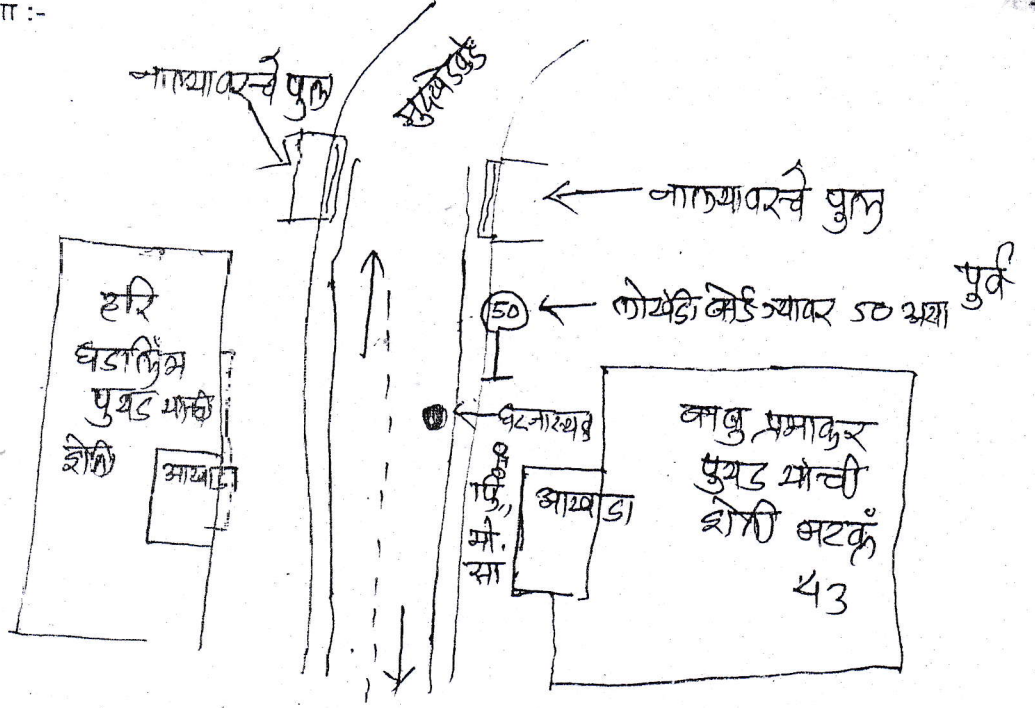 ा :-
नाल्यावरचे पुल
मुदखेडकडे
नाल्यावरचे पुल
पुर्व
50
लोखंडी बोर्ड ज्यावर 50 असा
हरि
पुयड यांची
शेती
आखाडा
घटनास्थळ
मो.
सा
आखाडा
बाळु प्रभाकर
पुयड यांची
शेती गटक्रं
43